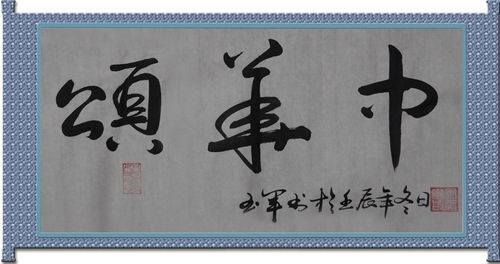 中華頌
玉軍书於壬辰年冬日